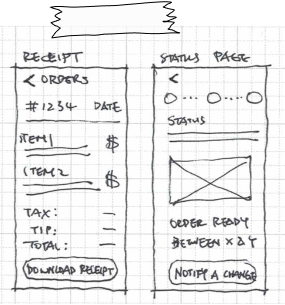 RECEIPT
< ORDERS
#1234 DATE
ITEM 1 $
ITEM 2 $
TAX: —
TIP: —
TOTAL: —
DOWNLOAD RECEIPT
STATUS PAGE
<
STATUS
ORDER READY
BETWEEN X & Y
NOTIFY A CHANGE